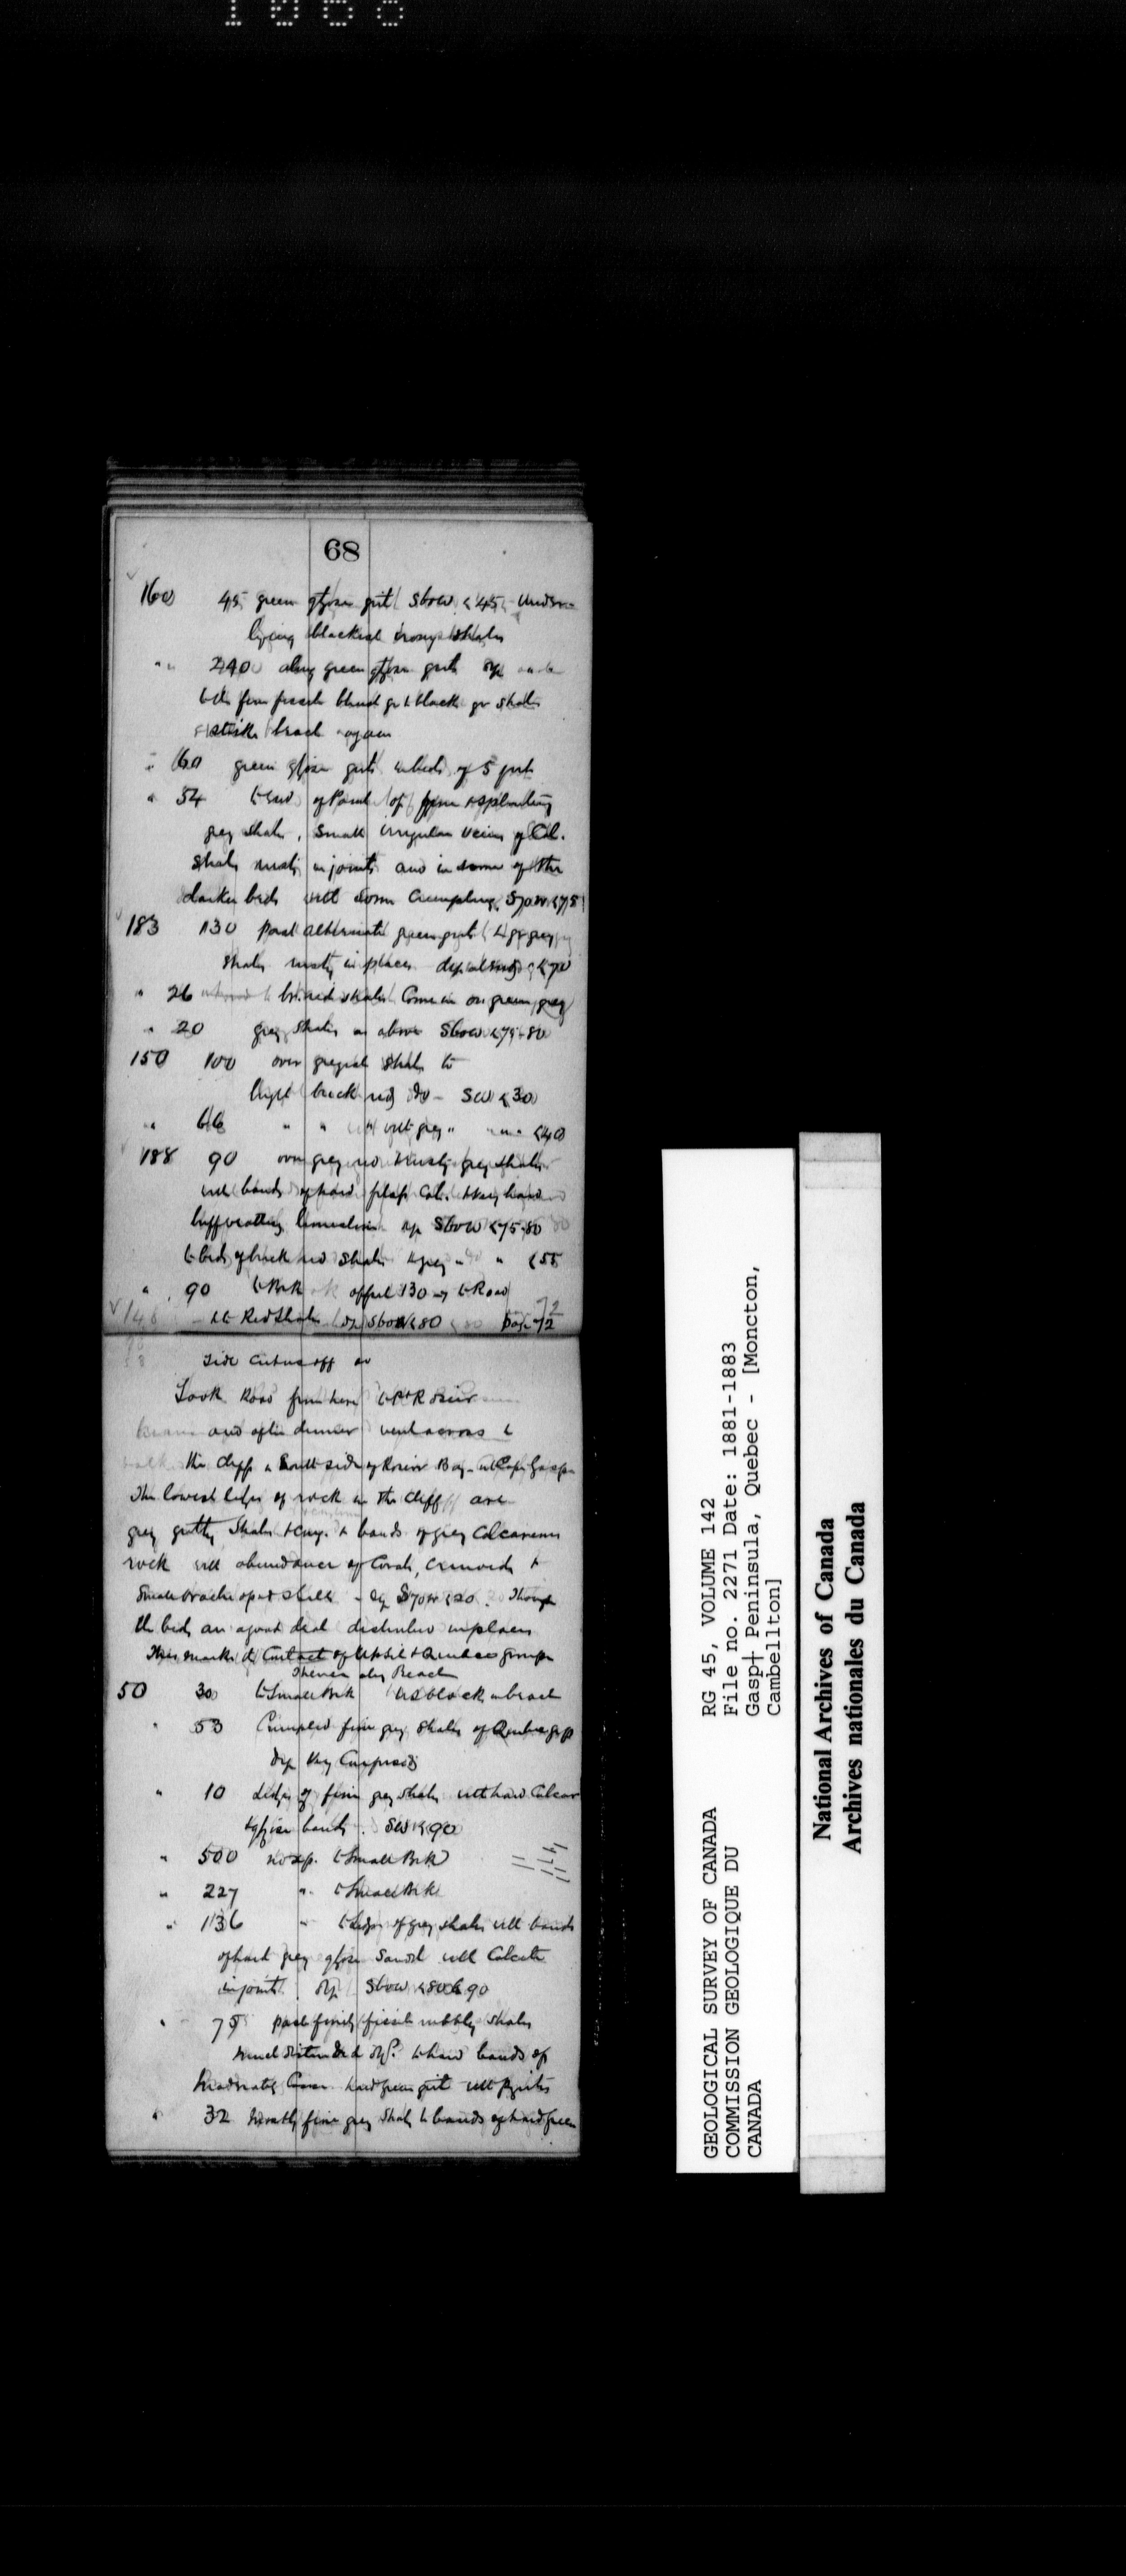 1068
68
160 45 green qtzose grit S60W <45 Under-
lying blackish irony shales
" 240 along green qtzose grits dip
with fine fissile black gr & black gr shales
strike beach again
" 60 green qtzose grits in beds of 5 feet
" 54 to end of Point of fine & splintery
grey shales, small irregular veins of Cal.
shales rusty in joints and in some of the
darker beds with some crumpling S70W <75
183 130 past alternate green grit & gr grey
shales rusty in places dip <70
" 26 br. red shales Come in on green grey
" 20 grey shales as above S60W <75-80
150 100 over greyish shales to
light brick red do - SW <30
" 66 " " with grey " " " <40
188 90 over grey red & rusty grey shales
with bands of hard Cal. & very hard
buff weathg limestone dip S60W <75-80
to beds of brick red shales & grey " " <55
" 90 to Brk offset 130 to Road
148 to Red Shales dip S60W <80 page 72
Tide cut us off so
Took Road from here to
and after dinner went across to
the cliffs on South side of Rosier Bay - at Cape Gaspe
The lowest ledges of rock in the cliff are
grey gritty shales & bands of grey Calcareous
rock with abundance of Corals, crinoids &
small brachiopod shells - dip S70W <20. Though
the beds are a good deal disturbed in places
This marks the Contact of Up Sil & Quebec groups
Thence along Beach
50 30 to Small Brk blocks in beach
" 53 Crumpled fine grey shales of Quebec gp
dip very Confused
" 10 ledges of fine grey shales with hard Calcar
& qtzose bands. SW <90
" 500 no exp. to Small Brk
" 227 " to Small Brk
" 136 " to ledges of grey shales with bands
of hard grey qtzose Sandst with Calcite
in joints. dip S60W <80 & 90
" 75 past finely fissile rubbly shales
much disturbed dip. to hard bands of
hard green grit with Pyrites
" 32 mostly fine grey shales & bands of hard green
GEOLOGICAL SURVEY OF CANADA
COMMISSION GEOLOGIQUE DU
CANADA
RG 45, VOLUME 142
File no. 2271 Date: 1881-1883
Gasp† Peninsula, Quebec - [Moncton,
Cambellton]
National Archives of Canada
Archives nationales du Canada